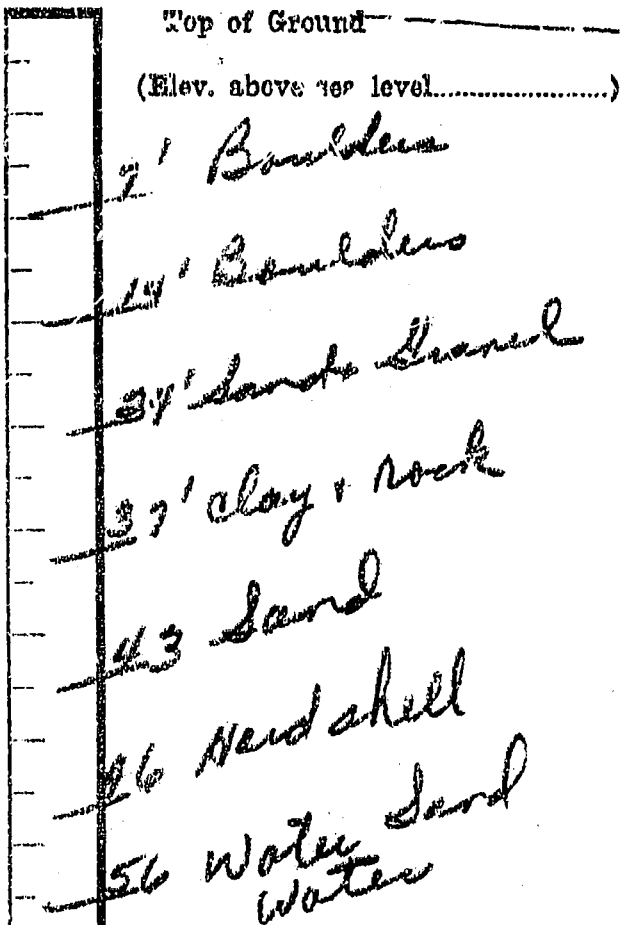 Top of Ground
(Elev. above sea level......................)
7' Boulders
14' Boulders
34' Sand & Gravel
37' Clay & Rock
43 Sand
46 Hard shell
56 Water Sand
Water